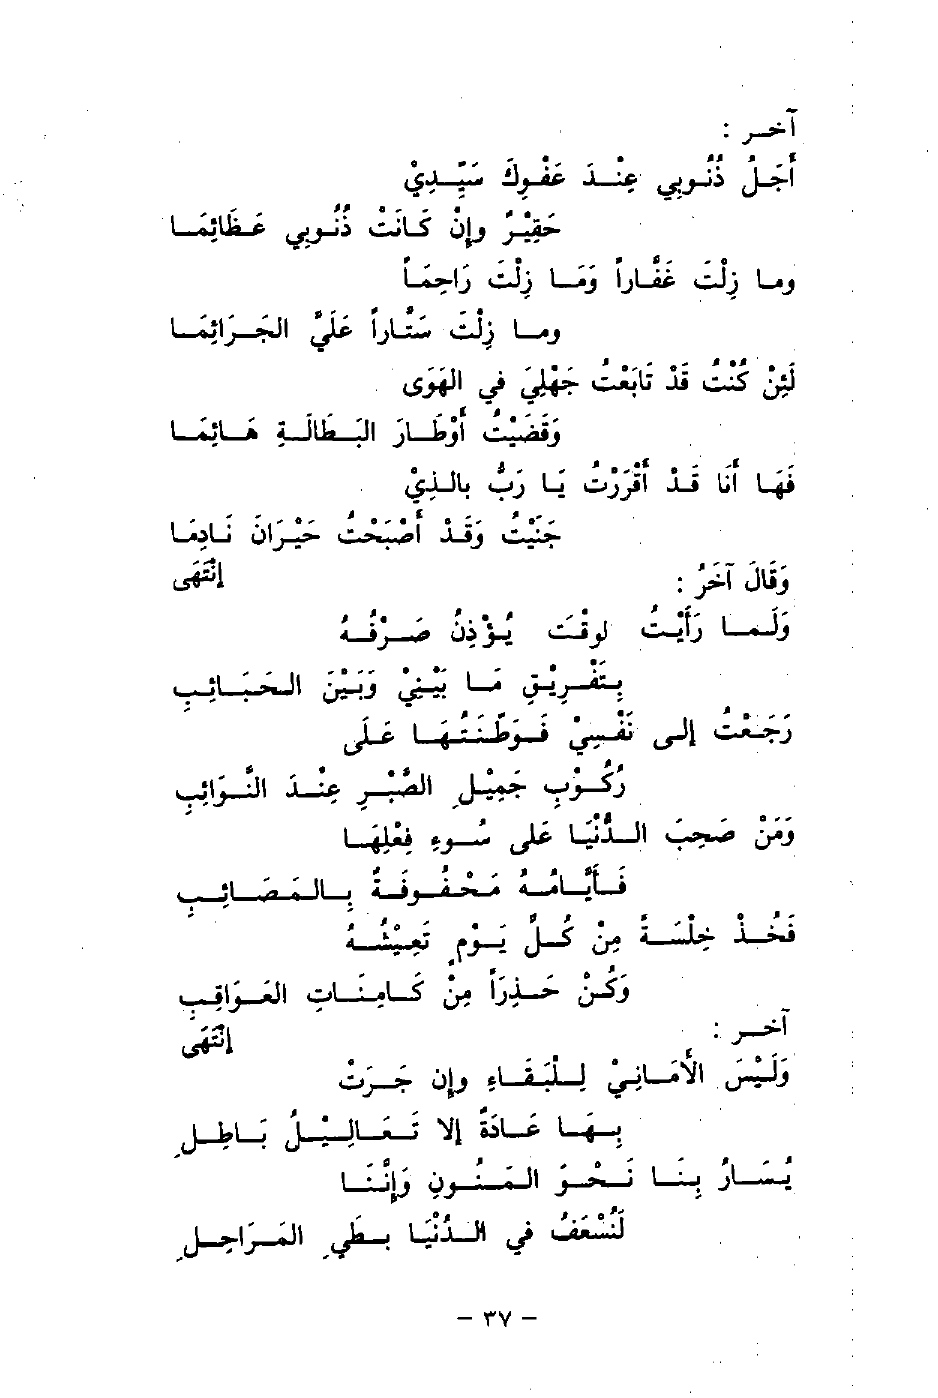 آخر :
أَجَلُ ذُنُوبِي عِنْدَ عَفْوِكَ سَيِّدِيْ
حَقِيْرٌ وإِنْ كَانَتْ ذُنُوبِي عَظَائِمَا
وما زِلْتَ غَفَّاراً وَمَا زِلْتَ رَاحِمَاً
وما زِلْتَ سَتَّاراً عَلَيَّ الجَرَائِمَا
لَئِنْ كُنْتُ قَدْ تَابَعْتُ جَهْلِيَ في الهَوَى
وَقَضَيْتُ أَوْطَارَ البَطَالَةِ هَائِمَا
فَهَا أَنَا قَدْ أَقْرَرْتُ يَا رَبُّ بالذِيْ
جَنَيْتُ وَقَدْ أَصْبَحْتُ حَيْرَانَ نَادِمَا
إنْتَهَى
وَقَالَ آخَرُ :
وَلَما رَأَيْتُ لوقْتَ يُؤْذِنُ صَرْفُهُ
بِتَفْرِيْقِ مَا بَيْنِيْ وَبَيْنَ الحَبَائِبِ
رَجَعْتُ إلى نَفْسِيْ فَوَطَّنَتُهَا عَلَى
رُكُوْبِ جَمِيْلِ الصَّبْرِ عِنْدَ النَّوَائِبِ
وَمَنْ صَحِبَ الدُّنْيَا عَلى سُوءِ فِعْلِهَا
فَأَيَّامُهُ مَحْفُوفَةٌ بِالمَصَائِبِ
فَخُذْ خِلْسَةً مِنْ كُلِّ يَوْمٍ تَعِيْشُهُ
وَكُنْ حَذِرَاً مِنْ كَامِنَاتِ العَوَاقِبِ
إنْتَهَى
آخر :
وَلَيْسَ الأَمَانِيْ لِلْبَقَاءِ وإِن جَرَتْ
بِهَا عَادَةٌ إلا تَعَالِيْلُ بَاطِلِ
يُسَارُ بِنَا نَحْوَ المَنُونِ وَإِنَّنَا
لَنُسْعَفُ في الدُنْيَا بطَيِ المَرَاحِلِ
- ٣٧ -